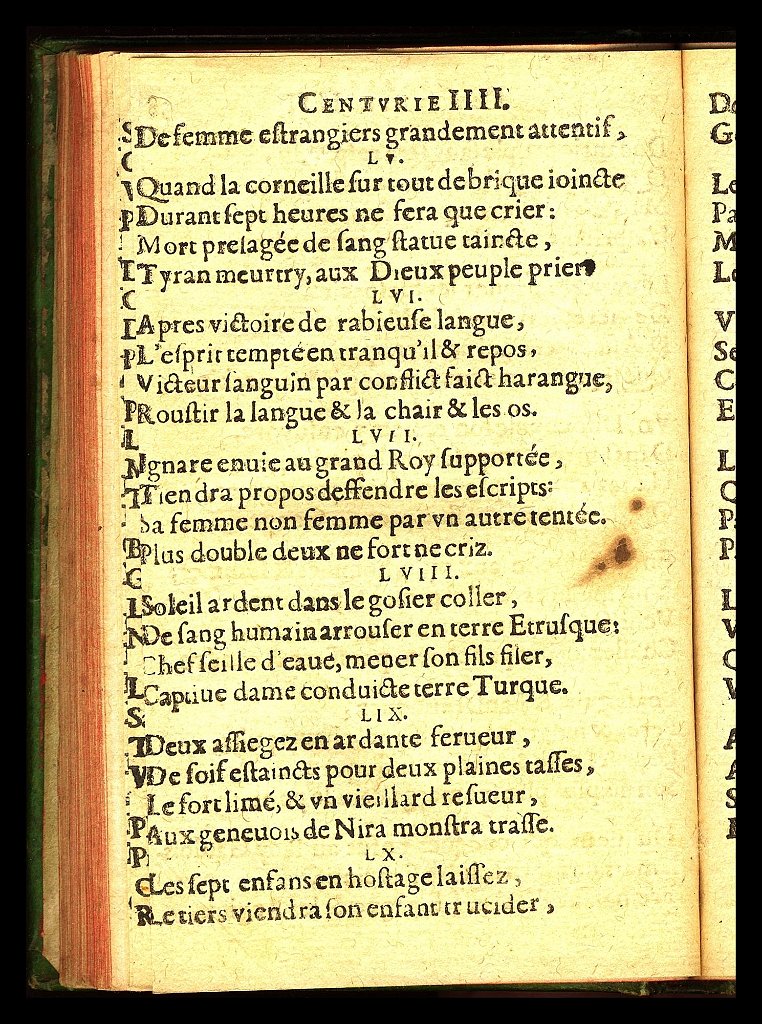 CENTVRIE IIII.
De femme estrangiers grandement attentif,
LV.
Quand la corneille sur tout de brique ioincte
Durant sept heures ne fera que crier:
Mort presagée de sang statue taincte,
Tyran meurtry, aux Dieux peuple prier
LVI.
Apres victoire de rabieuse langue,
L'esprit tempté en tranqu'il & repos,
Victeur sanguin par conflict faict harangue,
Roustir la langue & la chair & les os.
LVII.
Ignare enuie au grand Roy supportée,
Tiendra propos deffendre les escripts:
Sa femme non femme par vn autre tentée.
Plus double deux ne fort ne criz.
LVIII.
Soleil ardent dans le gosier coller,
De sang humain arrouser en terre Etrusque:
Chef seille d'eaue, mener son fils filer,
Captiue dame conduicte terre Turque.
LIX.
Deux assiegez en ardante ferueur,
De soif estaincts pour deux plaines tasses,
Le fort limé, & vn vieillard resueur,
Aux geneuois de Nira monstra trasse.
LX.
Les sept enfans en hostage laissez,
Le tiers viendra son enfant trucider,